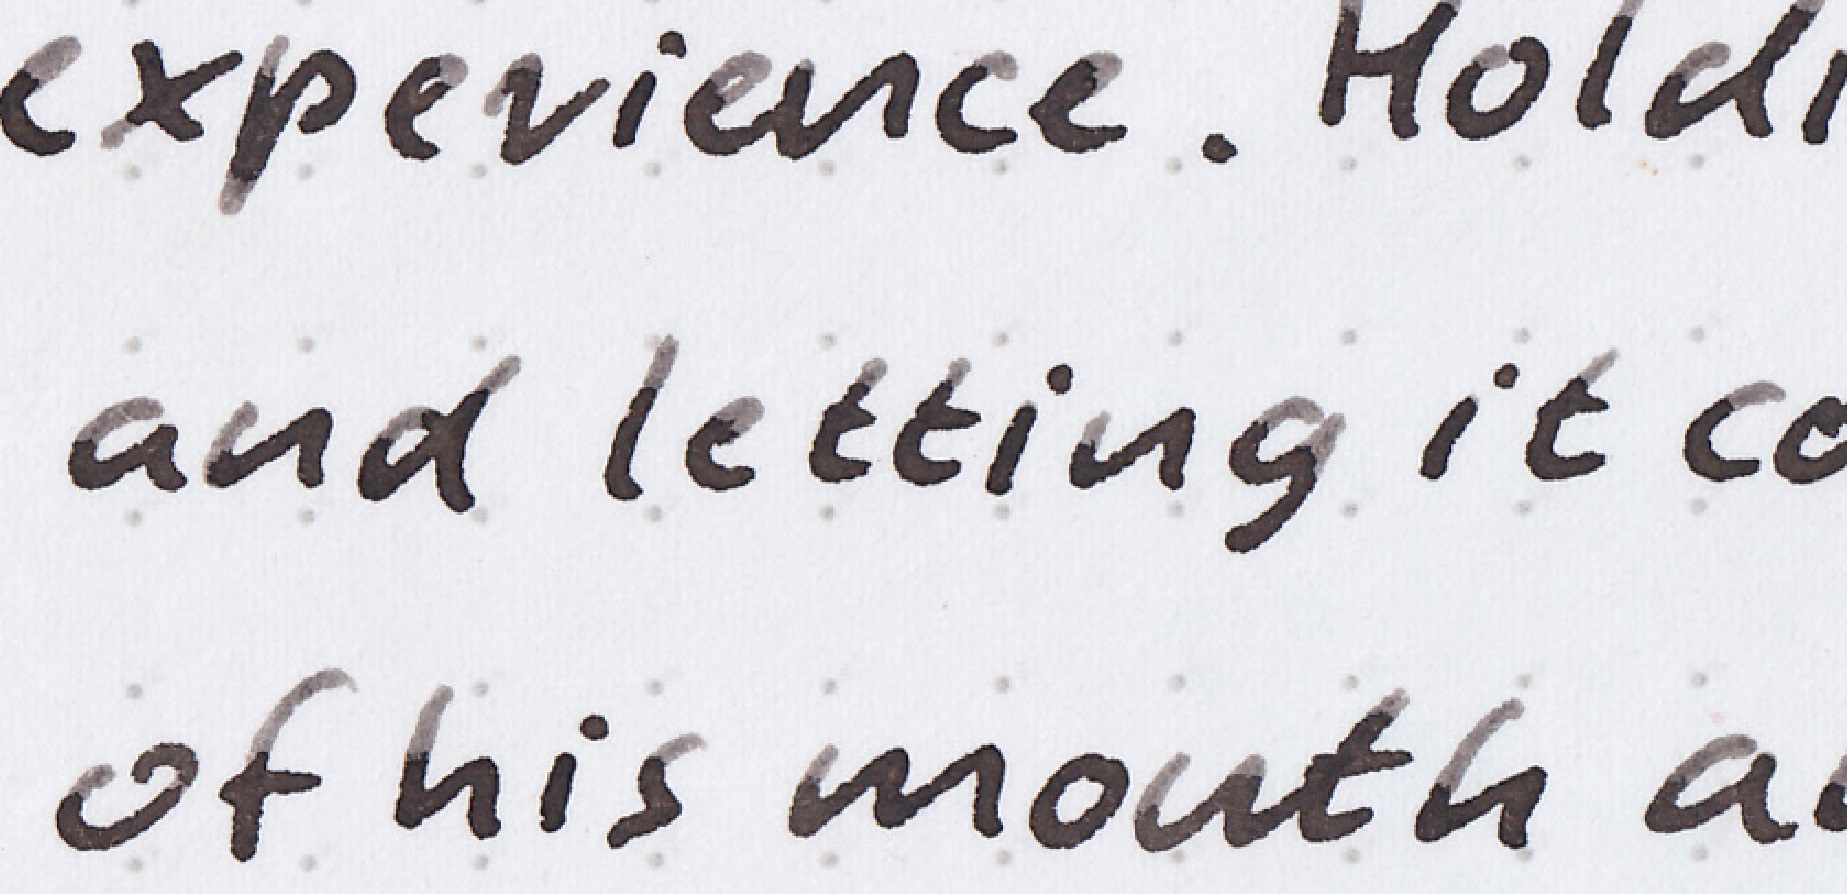 experience. Holdi
and letting it co
of his mouth a